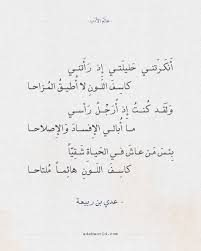 عالم الأدب
أَنكَرَتني حَليلَتي إِذ رَأَتني
كاسِفَ اللَونِ لا أُطيقُ المُزاحا
وَلَقَد كُنتُ إِذ أُرَجِّلُ رَأسي
ما أُبالي الإِفسادَ وَالإِصلاحا
بِئسَ مَن عاشَ في الحَياةِ شَقيّاً
كاسِفَ اللَونِ هائِماً مُلتاحا
- عدي بن ربيعة -
adabworld.com